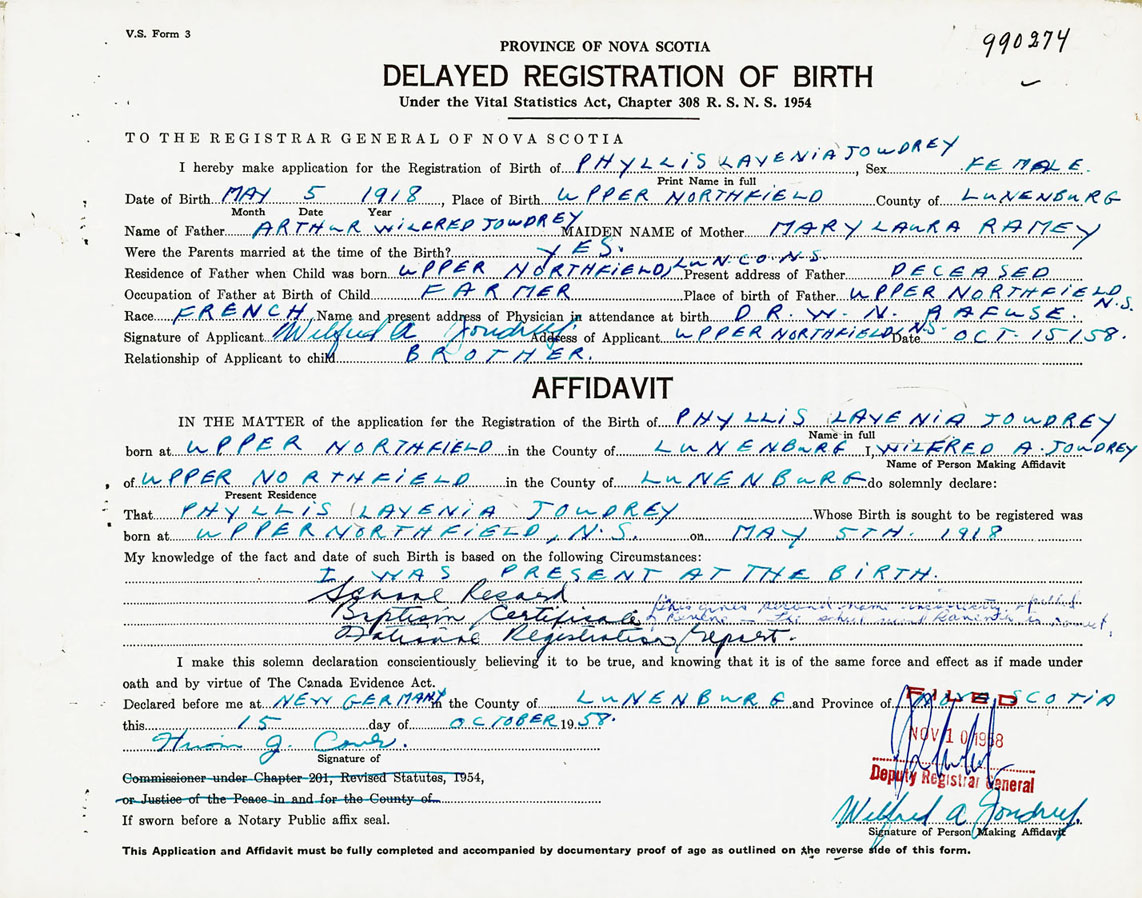 V.S. Form 3
990274
PROVINCE OF NOVA SCOTIA
DELAYED REGISTRATION OF BIRTH
Under the Vital Statistics Act, Chapter 308 R. S. N. S. 1954
TO THE REGISTRAR GENERAL OF NOVA SCOTIA
I hereby make application for the Registration of Birth of PHYLLIS LAVENIA JOUDREY, Sex FEMALE.
Print Name in full
Date of Birth MAY 5 1918, Place of Birth UPPER NORTHFIELD County of LUNENBURG
Month Date Year
Name of Father ARTHUR WILFRED JOUDREY MAIDEN NAME of Mother MARY LAURA RAMEY
Were the Parents married at the time of the Birth? YES.
Residence of Father when Child was born UPPER NORTHFIELD, LUN. CO. N.S. Present address of Father DECEASED
Occupation of Father at Birth of Child FARMER Place of birth of Father UPPER NORTHFIELD N.S.
Race FRENCH Name and present address of Physician in attendance at birth DR. W. N. AAFUSE.
Signature of Applicant Wilfred A Joudrey Address of Applicant UPPER NORTHFIELD, N.S. Date OCT. 15/58.
Relationship of Applicant to child BROTHER.
AFFIDAVIT
IN THE MATTER of the application for the Registration of the Birth of PHYLLIS LAVENIA JOUDREY
Name in full
born at UPPER NORTHFIELD in the County of LUNENBURG I, WILFRED A. JOUDREY
Name of Person Making Affidavit
of UPPER NORTHFIELD in the County of LUNENBURG do solemnly declare:
Present Residence
That PHYLLIS LAVENIA JOUDREY Whose Birth is sought to be registered was
born at UPPER NORTHFIELD, N.S. on MAY 5TH. 1918
My knowledge of the fact and date of such Birth is based on the following Circumstances:
I WAS PRESENT AT THE BIRTH.
School Record
Baptism Certificate
National Registration Report.
I make this solemn declaration conscientiously believing it to be true, and knowing that it is of the same force and effect as if made under
oath and by virtue of The Canada Evidence Act.
Declared before me at NEW GERMANY in the County of LUNENBURG and Province of NOVA SCOTIA
FILED
this 15 day of OCTOBER 1958.
NOV 10 1958
Signature of
Deputy Registrar General
Commissioner under Chapter 201, Revised Statutes, 1954,
or Justice of the Peace in and for the County of
If sworn before a Notary Public affix seal.
Wilfred A Joudrey
Signature of Person Making Affidavit
This Application and Affidavit must be fully completed and accompanied by documentary proof of age as outlined on the reverse side of this form.